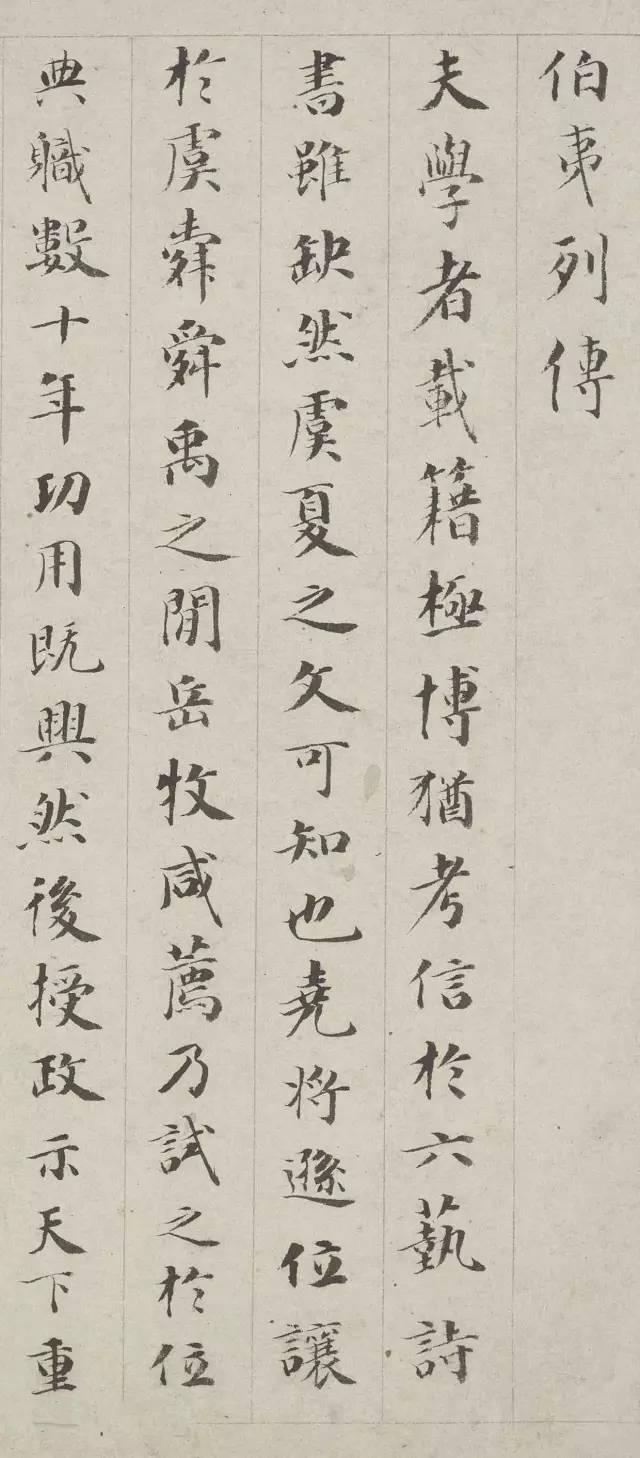 伯夷列傳
夫學者載籍極博猶考信於六藝詩
書雖缺然虞夏之文可知也堯將遜位讓
於虞舜舜禹之間岳牧咸薦乃試之於位
典職數十年功用既興然後授政示天下重